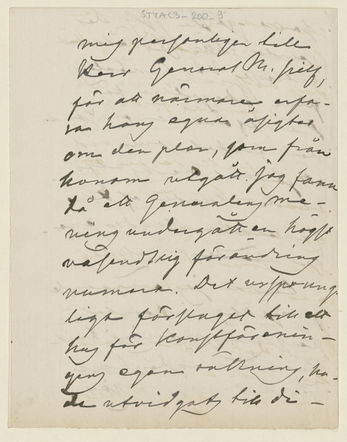 STYACS_200_9
mig personligen till
Herr General M. sjelf,
för att närmare erfa-
ra hans egna åsigter
om den plan, som från
honom utgått. Jag fann
då att Generalens me-
ning undergått en högst
väsendtlig förändring
numera. Det ursprung-
liga förslaget till ett
hus för Konstförenin-
gens egen räkning, ha-
de utvidgats till di-